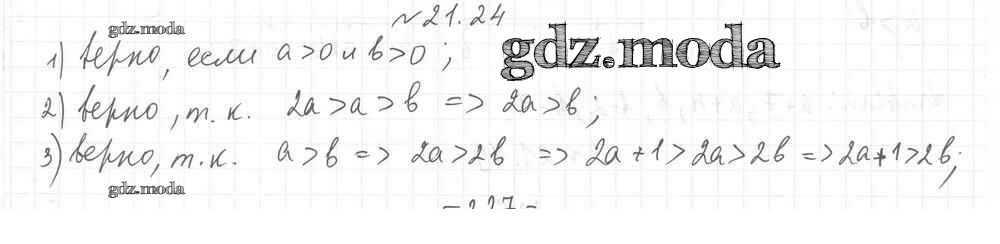 №21.24
gdz.moda
gdz.moda
1) верно, если a>0 и b>0;
2) верно, т.к. 2a>a>b => 2a>b;
3) верно, т.к. a>b => 2a>2b => 2a+1>2a>2b => 2a+1>2b;
gdz.moda